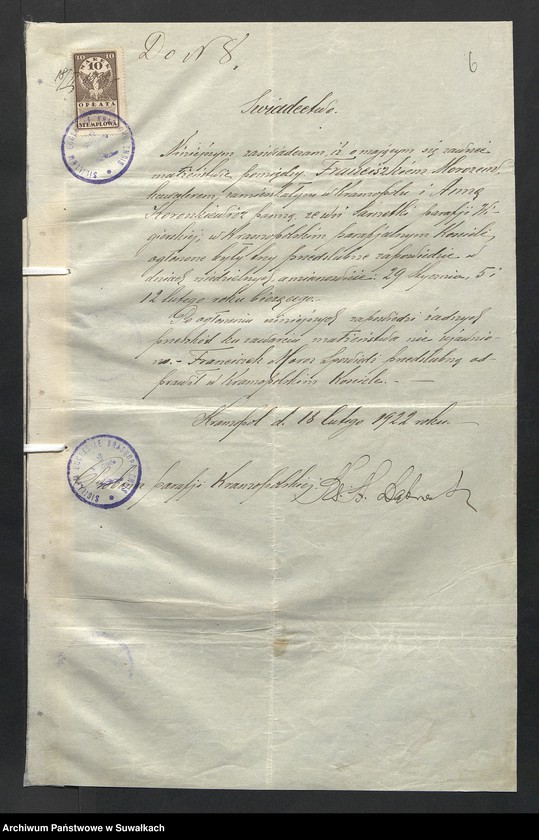 Do N 8.
6
10 10
10
OPŁATA
STEMPLOWA
Świadectwo.
Niniejszym zaświadczam, iż o mającym się zawrzeć
małżeństwie pomiędzy Franciszkiem Morozem,
kawalerem, zamieszkałym w Krasnopolu i Anną
panną, ze wsi parafji Wi-
gierskiej, w Krasnopolskim parafjalnym Kościele,
ogłoszone były trzy przedślubne zapowiedzie w
dniach niedzielnych, a mianowicie: 29 stycznia, 5 i
12 lutego roku bieżącego.
Po ogłoszeniu niniejszych zapowiedzi żadnych
przeszkód ku zawarciu małżeństwa nie wyjawio-
no. - Franciszek Moroz spowiedź przedślubną od-
prawił w Krasnopolskim Kościele. -
Krasnopol d. 18 lutego 1922 roku.
parafji Krasnopolskiej Ks.
Archiwum Państwowe w Suwałkach